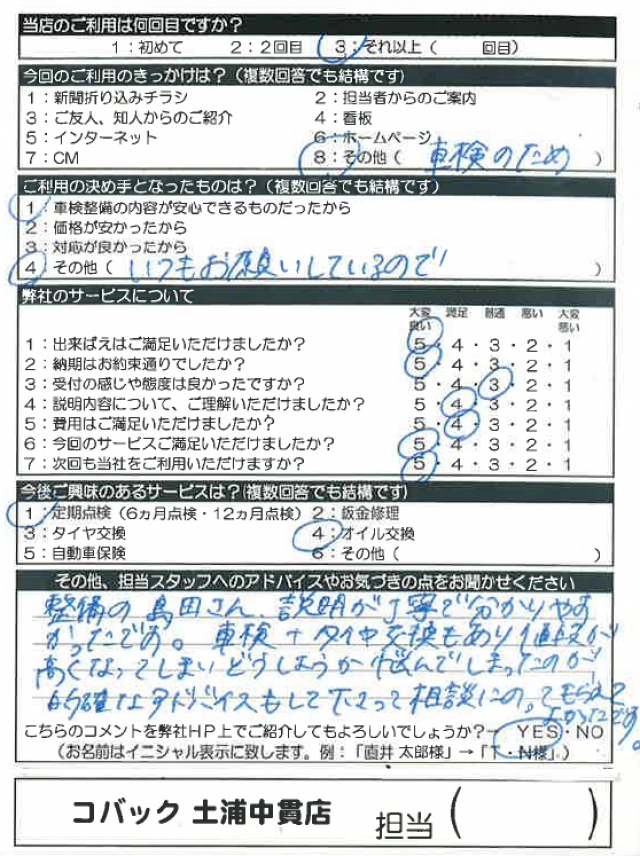 当店のご利用は何回目ですか？
1：初めて 2：2回目 3：それ以上（ 回目）
今回のご利用のきっかけは？（複数回答でも結構です）
1：新聞折り込みチラシ 2：担当者からのご案内
3：ご友人、知人からのご紹介 4：看板
5：インターネット 6：ホームページ
7：CM 8：その他（ 車検のため ）
ご利用の決め手となったものは？（複数回答でも結構です）
1：車検整備の内容が安心できるものだったから
2：価格が安かったから
3：対応が良かったから
4：その他（ いつもお願いしているので ）
弊社のサービスについて
大変良い 満足 普通 悪い 大変悪い
1：出来ばえはご満足いただけましたか？ 5・4・3・2・1
2：納期はお約束通りでしたか？ 5・4・3・2・1
3：受付の感じや態度は良かったですか？ 5・4・3・2・1
4：説明内容について、ご理解いただけましたか？ 5・4・3・2・1
5：費用はご満足いただけましたか？ 5・4・3・2・1
6：今回のサービスご満足いただけましたか？ 5・4・3・2・1
7：次回も当社をご利用いただけますか？ 5・4・3・2・1
今後ご興味のあるサービスは？（複数回答でも結構です）
1：定期点検（6ヵ月点検・12ヵ月点検） 2：鈑金修理
3：タイヤ交換 4：オイル交換
5：自動車保険 6：その他（ ）
その他、担当スタッフへのアドバイスやお気づきの点をお聞かせください
整備の島田さん、説明が丁寧で分かりやす
かったです。車検＋タイヤ交換もあり値段が
高くなってしまいどうしようか悩んでしまったのが、
的確なアドバイスもして下さって相談にのってもらえて
よかったです。
こちらのコメントを弊社HP上でご紹介してもよろしいでしょうか？→ YES・NO
（お名前はイニシャル表示に致します。例：「直井 太郎様」→「T・N様」）
コバック 土浦中貫店 担当（ ）